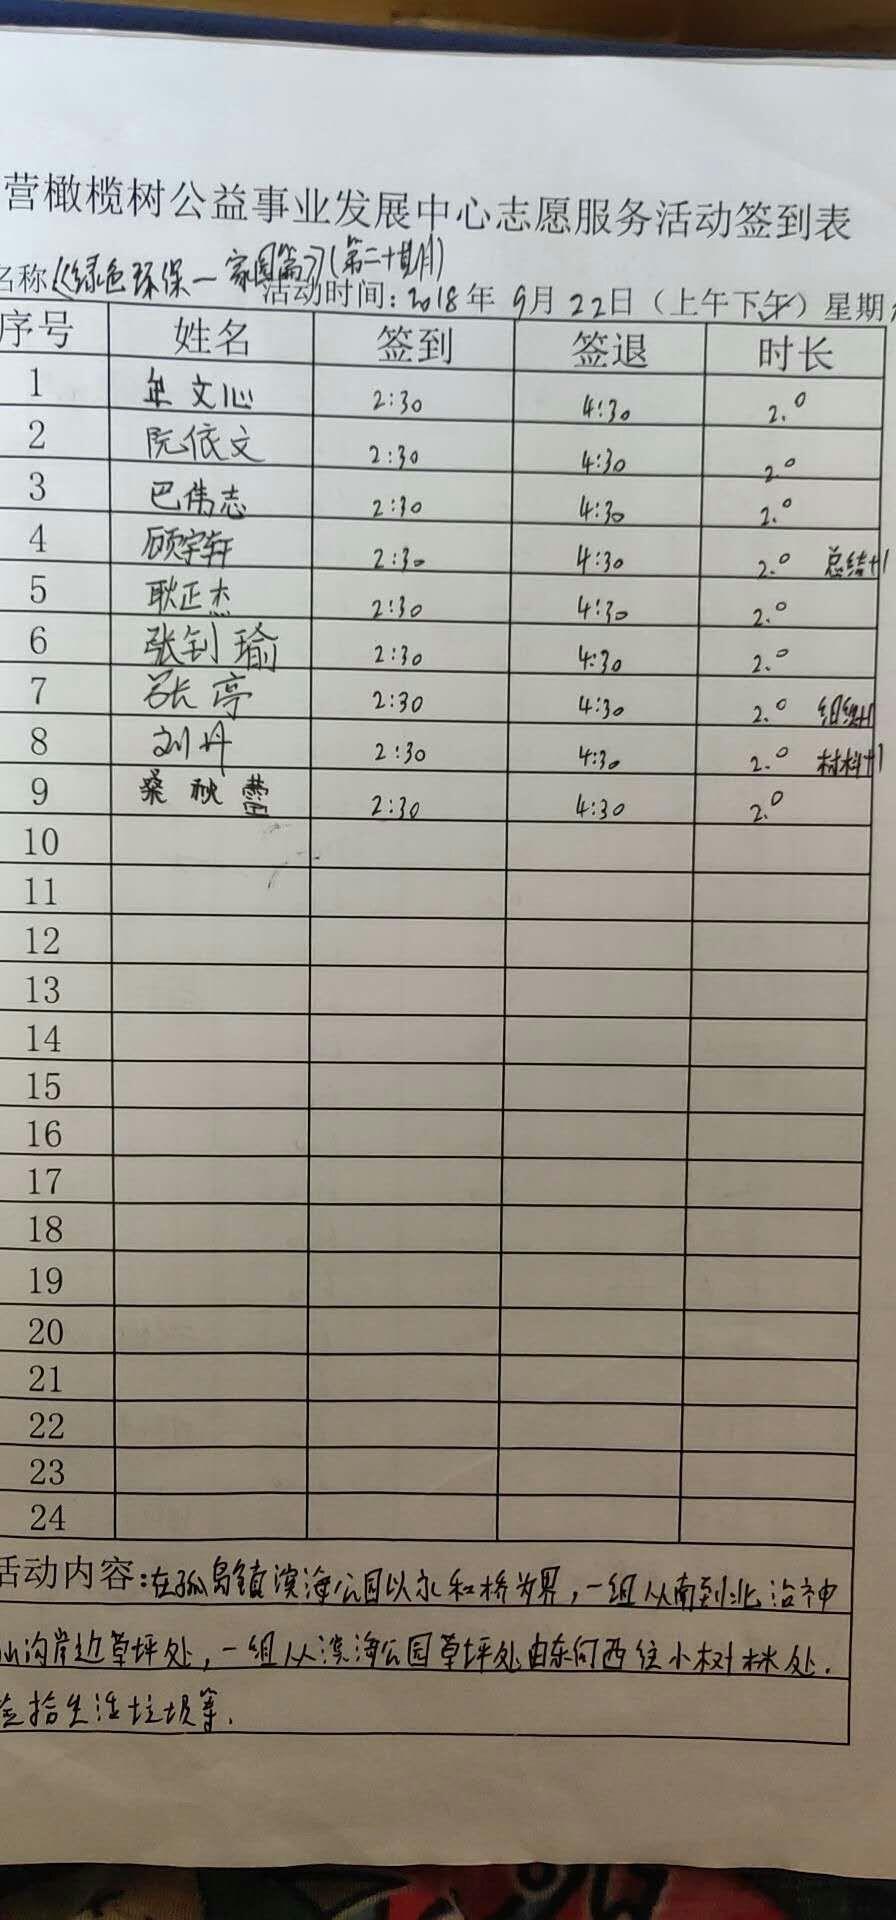 营橄榄树公益事业发展中心志愿服务活动签到表
名称《绿色环保—家园篇》(第二十期)
活动时间:2018年 9月 22日（上午下午）星期
序号 姓名 签到 签退 时长
1 文心 2:30 4:30 2.0
2 阮依文 2:30 4:30 2.0
3 巴伟志 2:30 4:30 2.0
4 顾宇轩 2:30 4:30 2.0 总结+1
5 耿正杰 2:30 4:30 2.0
6 张钊瑜 2:30 4:30 2.0
7 张亭 2:30 4:30 2.0 组织+1
8 刘丹 2:30 4:30 2.0 材料+1
9 桑秋 2:30 4:30 2.0
10
11
12
13
14
15
16
17
18
19
20
21
22
23
24
活动内容:在孤岛镇滨海公园以永和桥为界,一组从南到北沿神
仙沟岸边草坪处,一组从滨海公园草坪处由东向西往小树林处.
捡拾生活垃圾等.